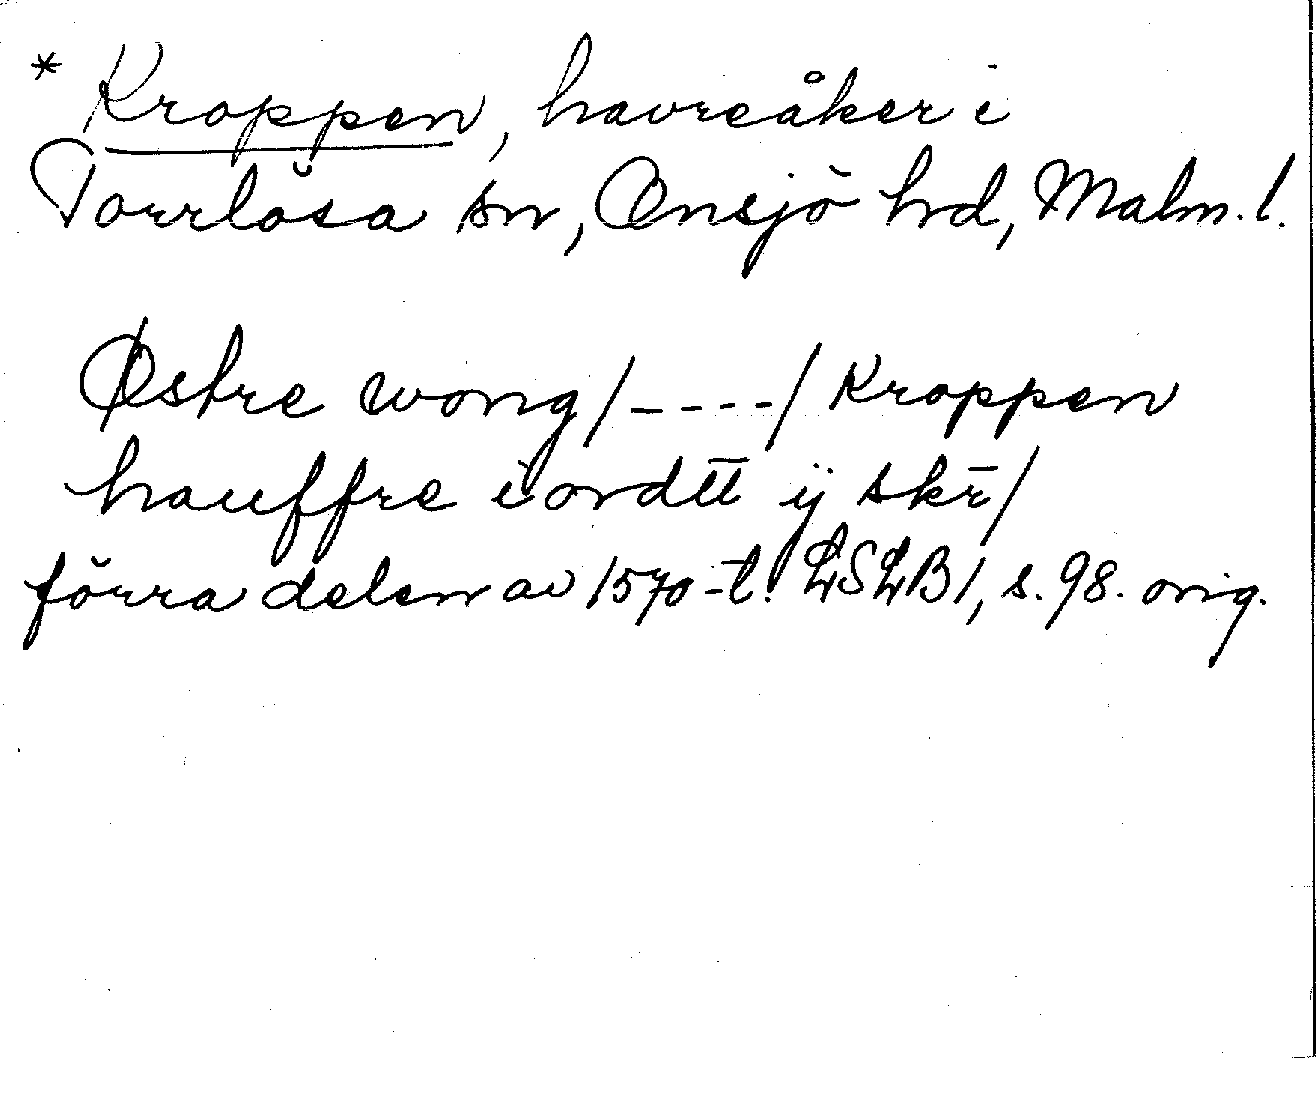 * Kroppen, havreåker i
Torrlösa sn, Onsjö hrd, Malm. l.
Østre wong /----/ Kroppen
hauffre i ordtt ÿ skr̄/
förra delen av 1570-t. LSLB 1, s. 98. orig.